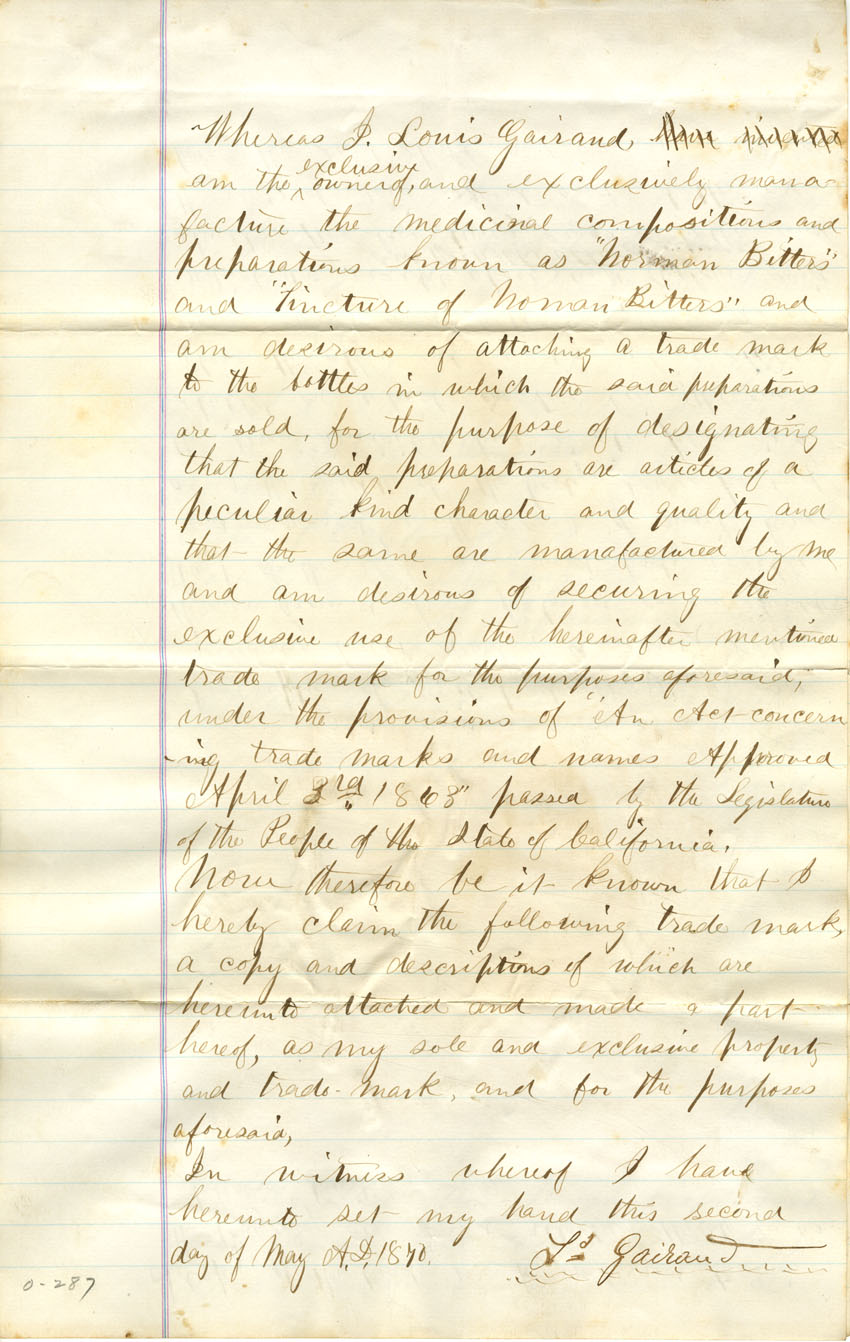 Whereas I, Louis Gairaud, have invented
am the exclusive owner of, and exclusively mana-
facture the medicinal compositions and
preparations known as "Norman Bitters"
and "Tincture of Noman Bitters" and
am desirous of attaching a trade mark
to the bottles in which the said preparations
are sold, for the purpose of designating
that the said preparations are articles of a
peculiar kind character and quality and
that the same are manafactured by me
and am desirous of securing the
exclusive use of the hereinafter mentioned
trade mark for the purposes aforesaid,
under the provisions of "An Act concern
-ing trade marks and names Approved
April 3rd 1863" passed by the Legislature
of the People of the State of California.
Now therefore be it known that I
hereby claim the following trade mark,
a copy and descriptions of which are
hereunto attached and made a part
hereof, as my sole and exclusive property
and trade-mark, and for the purposes
aforesaid,
In witness whereof I have
hereunto set my hand this second
day of May A.D. 1870.
Ls Gairaud
0-287